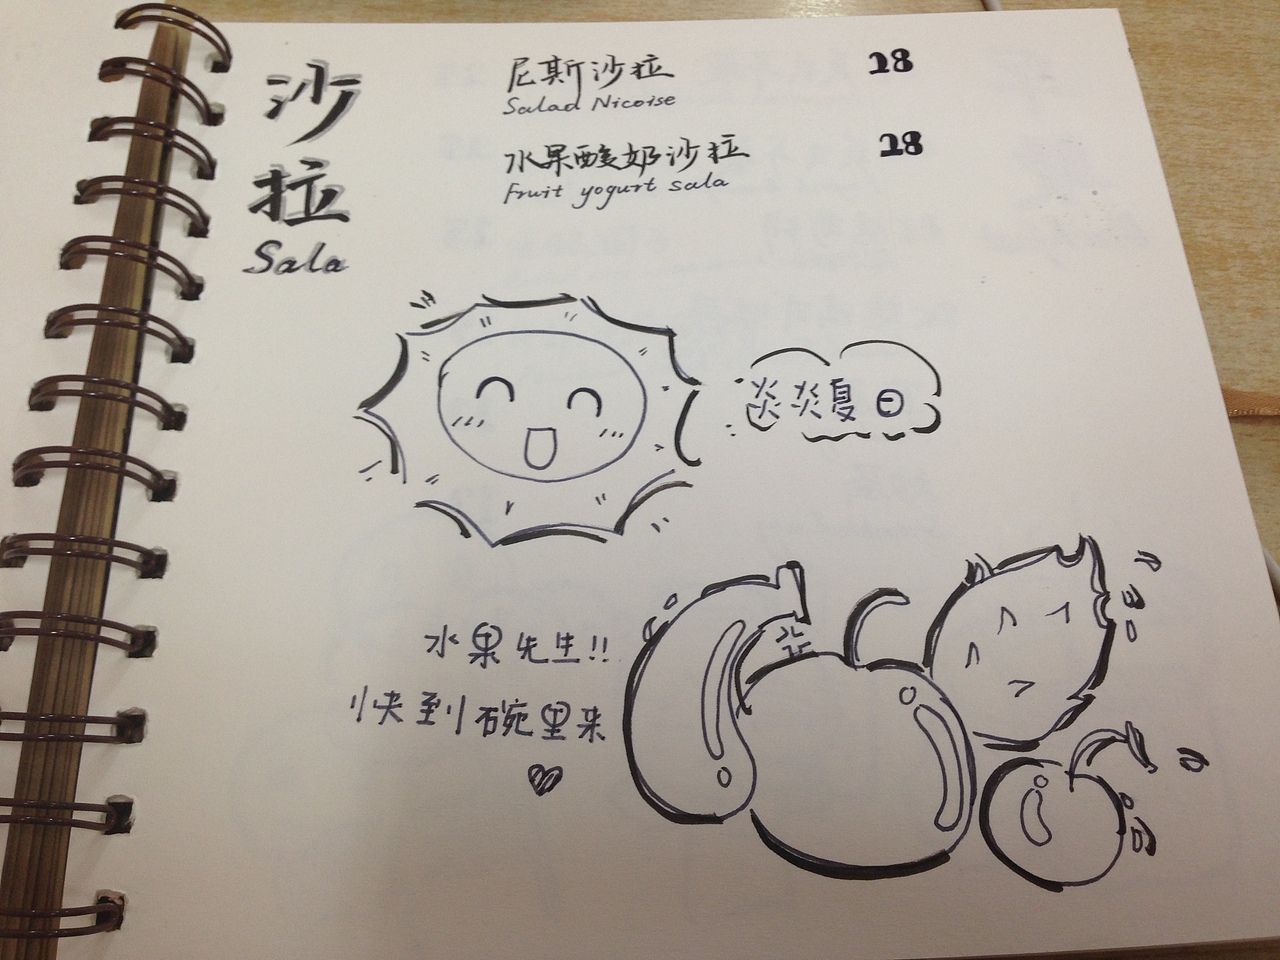 沙拉
Sala
尼斯沙拉 28
Salad Nicoise
水果酸奶沙拉 28
Fruit yogurt sala
炎炎夏日
水果先生!!
快到碗里来